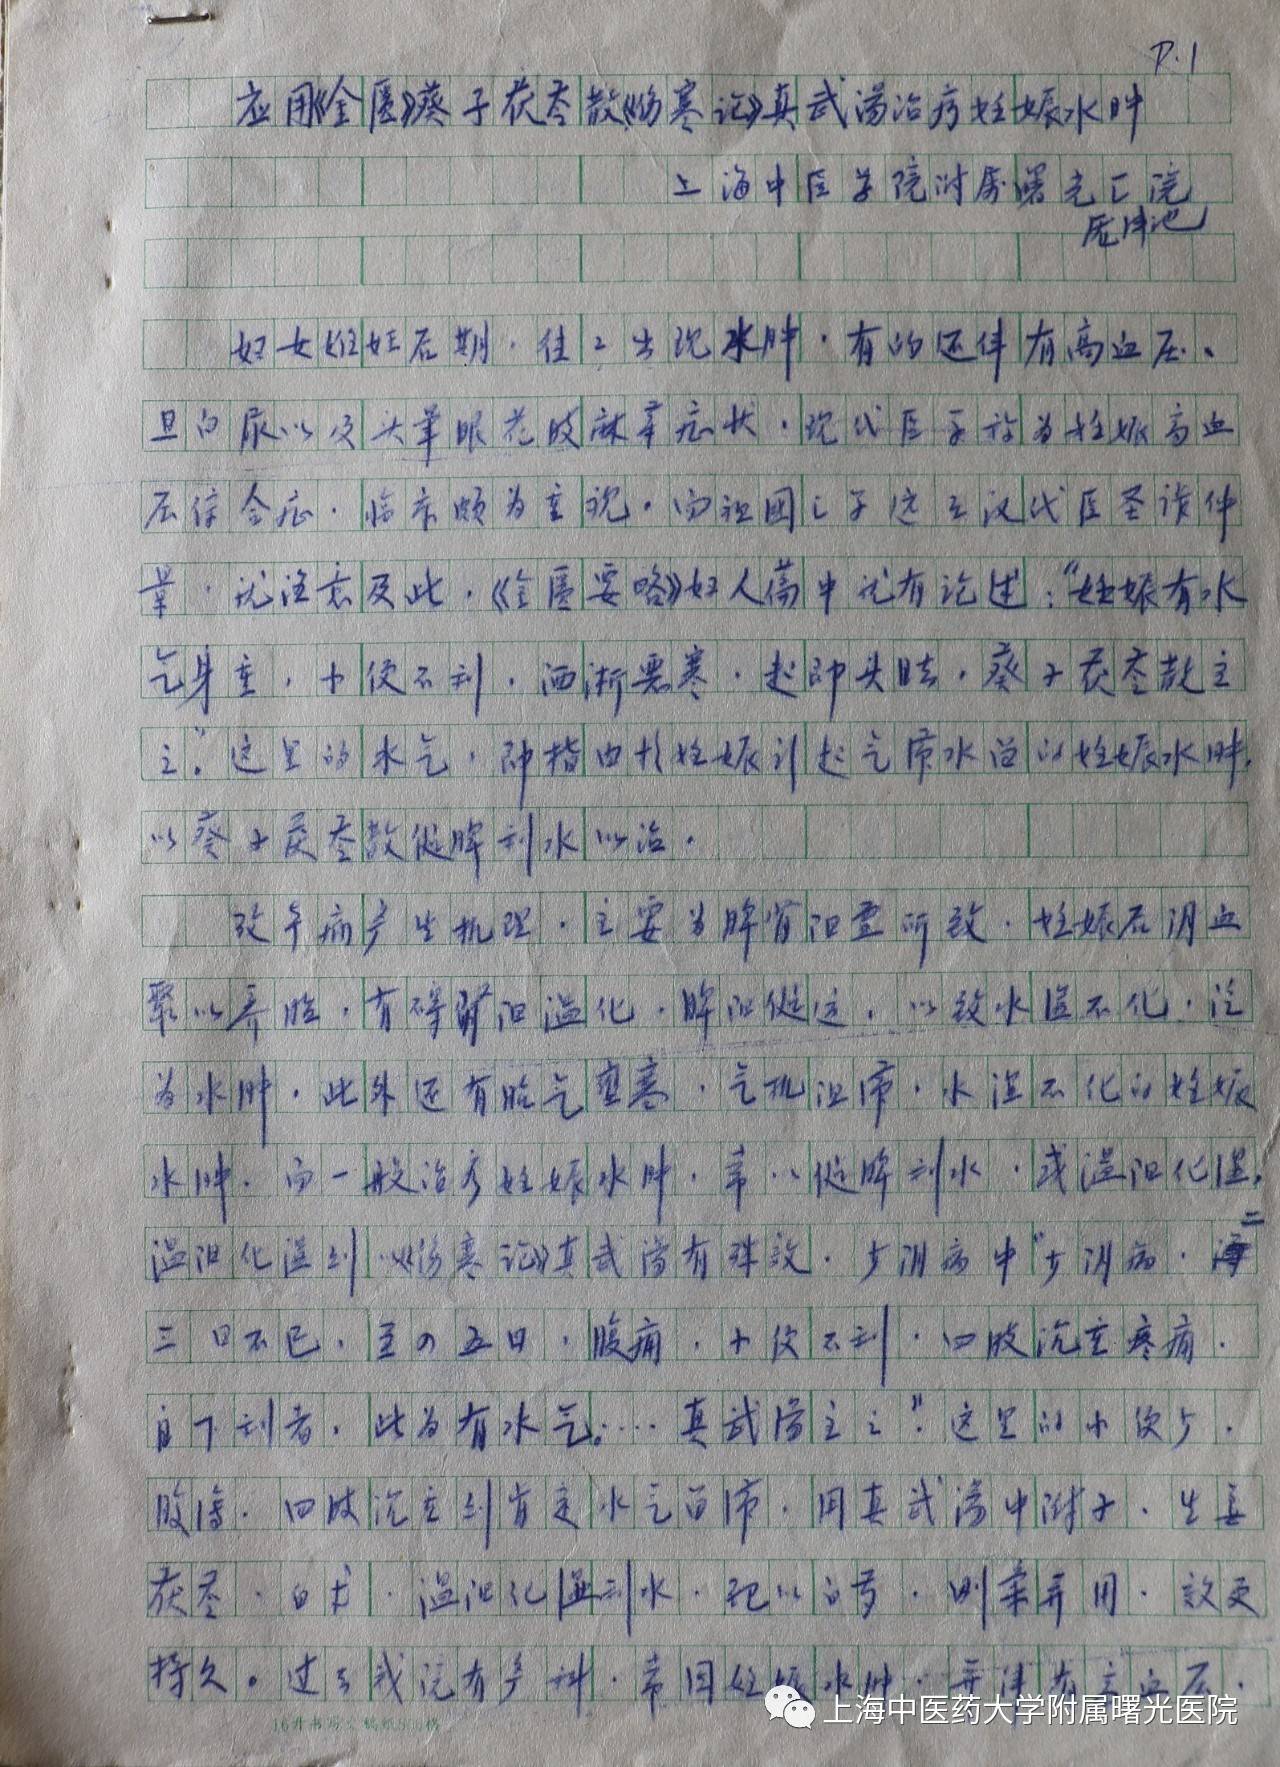 P.1
应用《金匮》葵子茯苓散《伤寒论》真武汤治疗妊娠水肿
上海中医学院附属曙光医院
妇女妊娠后期，往々出现水肿，有的还伴有高血压、
旦白尿以及头晕眼花肢麻等症状，现代医学称为妊娠高血
压综合症，临床颇为重视。而祖国医学远在汉代医圣张仲
景，就注意及此，《金匮要略》妇人篇中就有论述：“妊娠有水
气身重，小便不利，洒淅恶寒，起即头眩，葵子茯苓散主
之。”这里的水气，即指由于妊娠引起气滞水留的妊娠水肿，
以葵子茯苓散健脾利水以治。
致本病产生机理，主要为脾肾阳虚所致，妊娠后阴血
聚以养胎，有碍肾阳温化，脾阳健运，以致水湿不化，泛
为水肿，此外还有胎气壅塞，气机阻滞，水湿不化的妊娠
水肿。而一般治疗妊娠水肿，常以健脾利水，或温阳化湿，
温阳化湿利 以《伤寒论》真武汤有殊效，少阴病中“少阴病，二
三日不已，至四五日，腹痛，小便不利，四肢沉重疼痛，
自下利者，此为有水气。……真武汤主之”。这里的小便少，
腹痛，四肢沉重 肾 水气 滞，用真武汤中附子、生姜
茯苓、白术，温阳化湿利水，配以白芍，刚柔并用，效更
持久。过去我院有产科，常因妊娠水肿，并伴有高血压，
16开书写文稿纸
上海中医药大学附属曙光医院